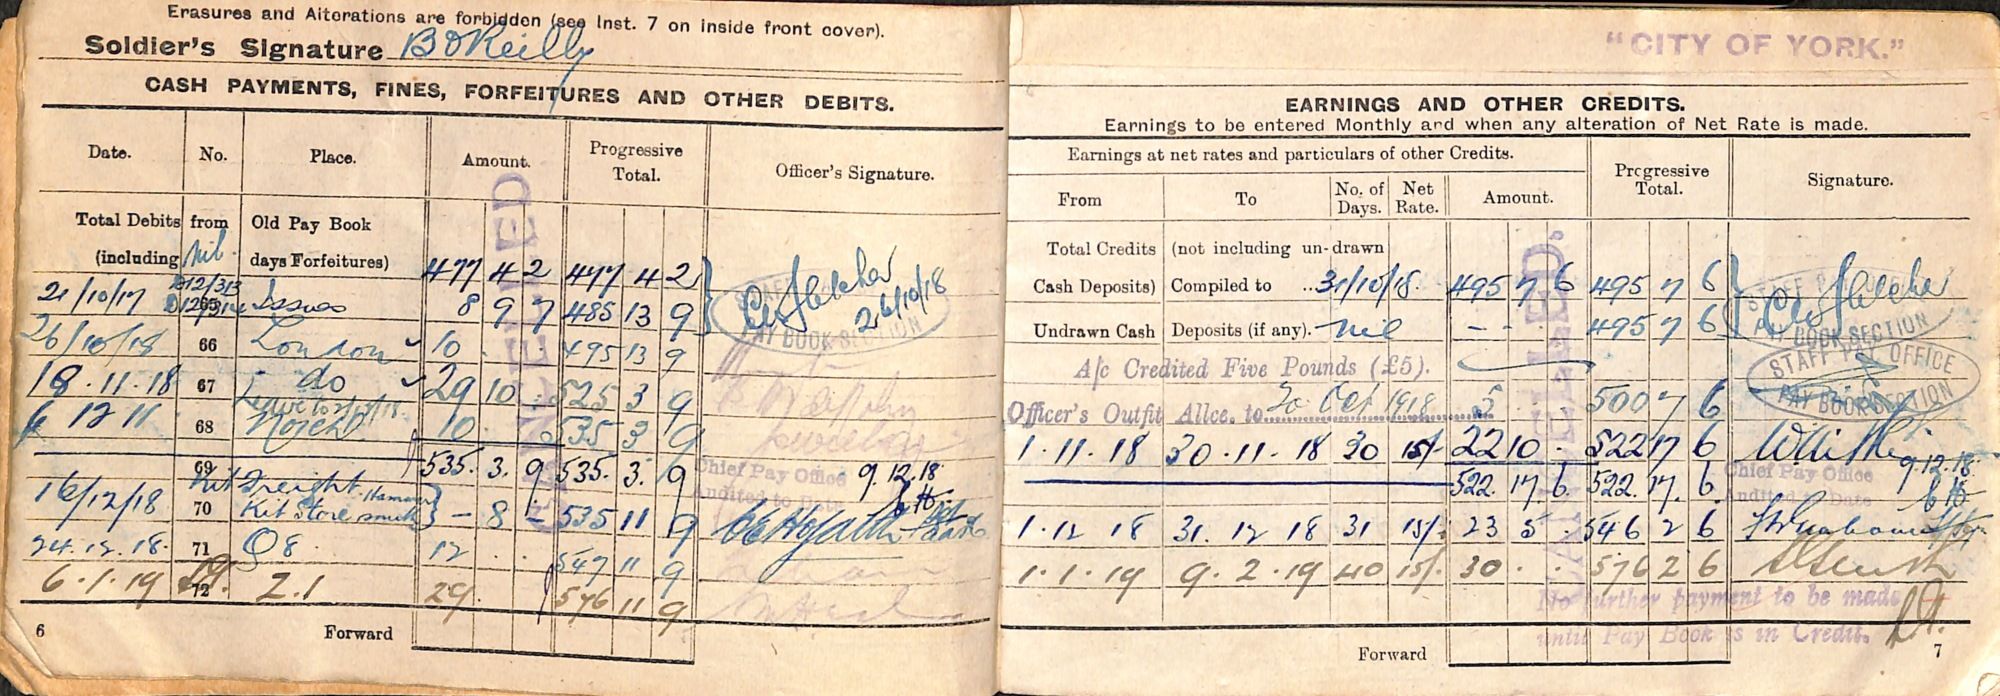 Erasures and Alterations are forbidden (see Inst. 7 on inside front cover).
Soldier's Signature B O'Reilly
CASH PAYMENTS, FINES, FORFEITURES AND OTHER DEBITS.
Date. No. Place. Amount. Progressive Total. Officer's Signature.
Total Debits from Old Pay Book
(including nil days Forfeitures) 477 4 2 477 4 2
21/10/17 65 Issues 8 9 7 485 13 9 Fletcher 26/10/18
STAFF PAY BOOK SECTION
26/10/18 66 London 10 495 13 9
18.11.18 67 do 29 10 525 3 9
6 12 11 68 10. 535 3 9
535. 3. 9 535. 3. 9 Chief Pay Office 9.12.18
Audited to Date
69 Kit Freight
16/12/18 70 Kit Store - 8 - 535 11 9
24.12.18. 71 Q8. 12 547 11 9
6.1.19 72 Z.1 29. 576 11 9
CANCELLED
6 Forward
"CITY OF YORK."
EARNINGS AND OTHER CREDITS.
Earnings to be entered Monthly and when any alteration of Net Rate is made.
Earnings at net rates and particulars of other Credits. Progressive Total. Signature.
From To No. of Days. Net Rate. Amount.
Total Credits (not including un-drawn
Cash Deposits) Compiled to ..31/10/18. 495 7 6 495 7 6 Fletcher
Undrawn Cash Deposits (if any). nil - - - 495 7 6
STAFF PAY OFFICE PAY BOOK SECTION
A/c Credited Five Pounds (£5).
STAFF PAY OFFICE PAY BOOK SECTION
Officer's Outfit Allce. to 30 Oct 1918 5 . . 500 7 6
1.11.18 30.11.18 30 15/- 22 10 . 522 17 6
522. 17. 6. 522. 17. 6 Chief Pay Office 9.12.18
Audited to Date
1.12 18 31.12 18 31 15/- 23 5 . 546 2 6
1.1.19 9.2.19 40 15/- 30 . . 576 2 6
CANCELLED.
No further payment to be made
until Pay Book is in Credit.
Forward 7